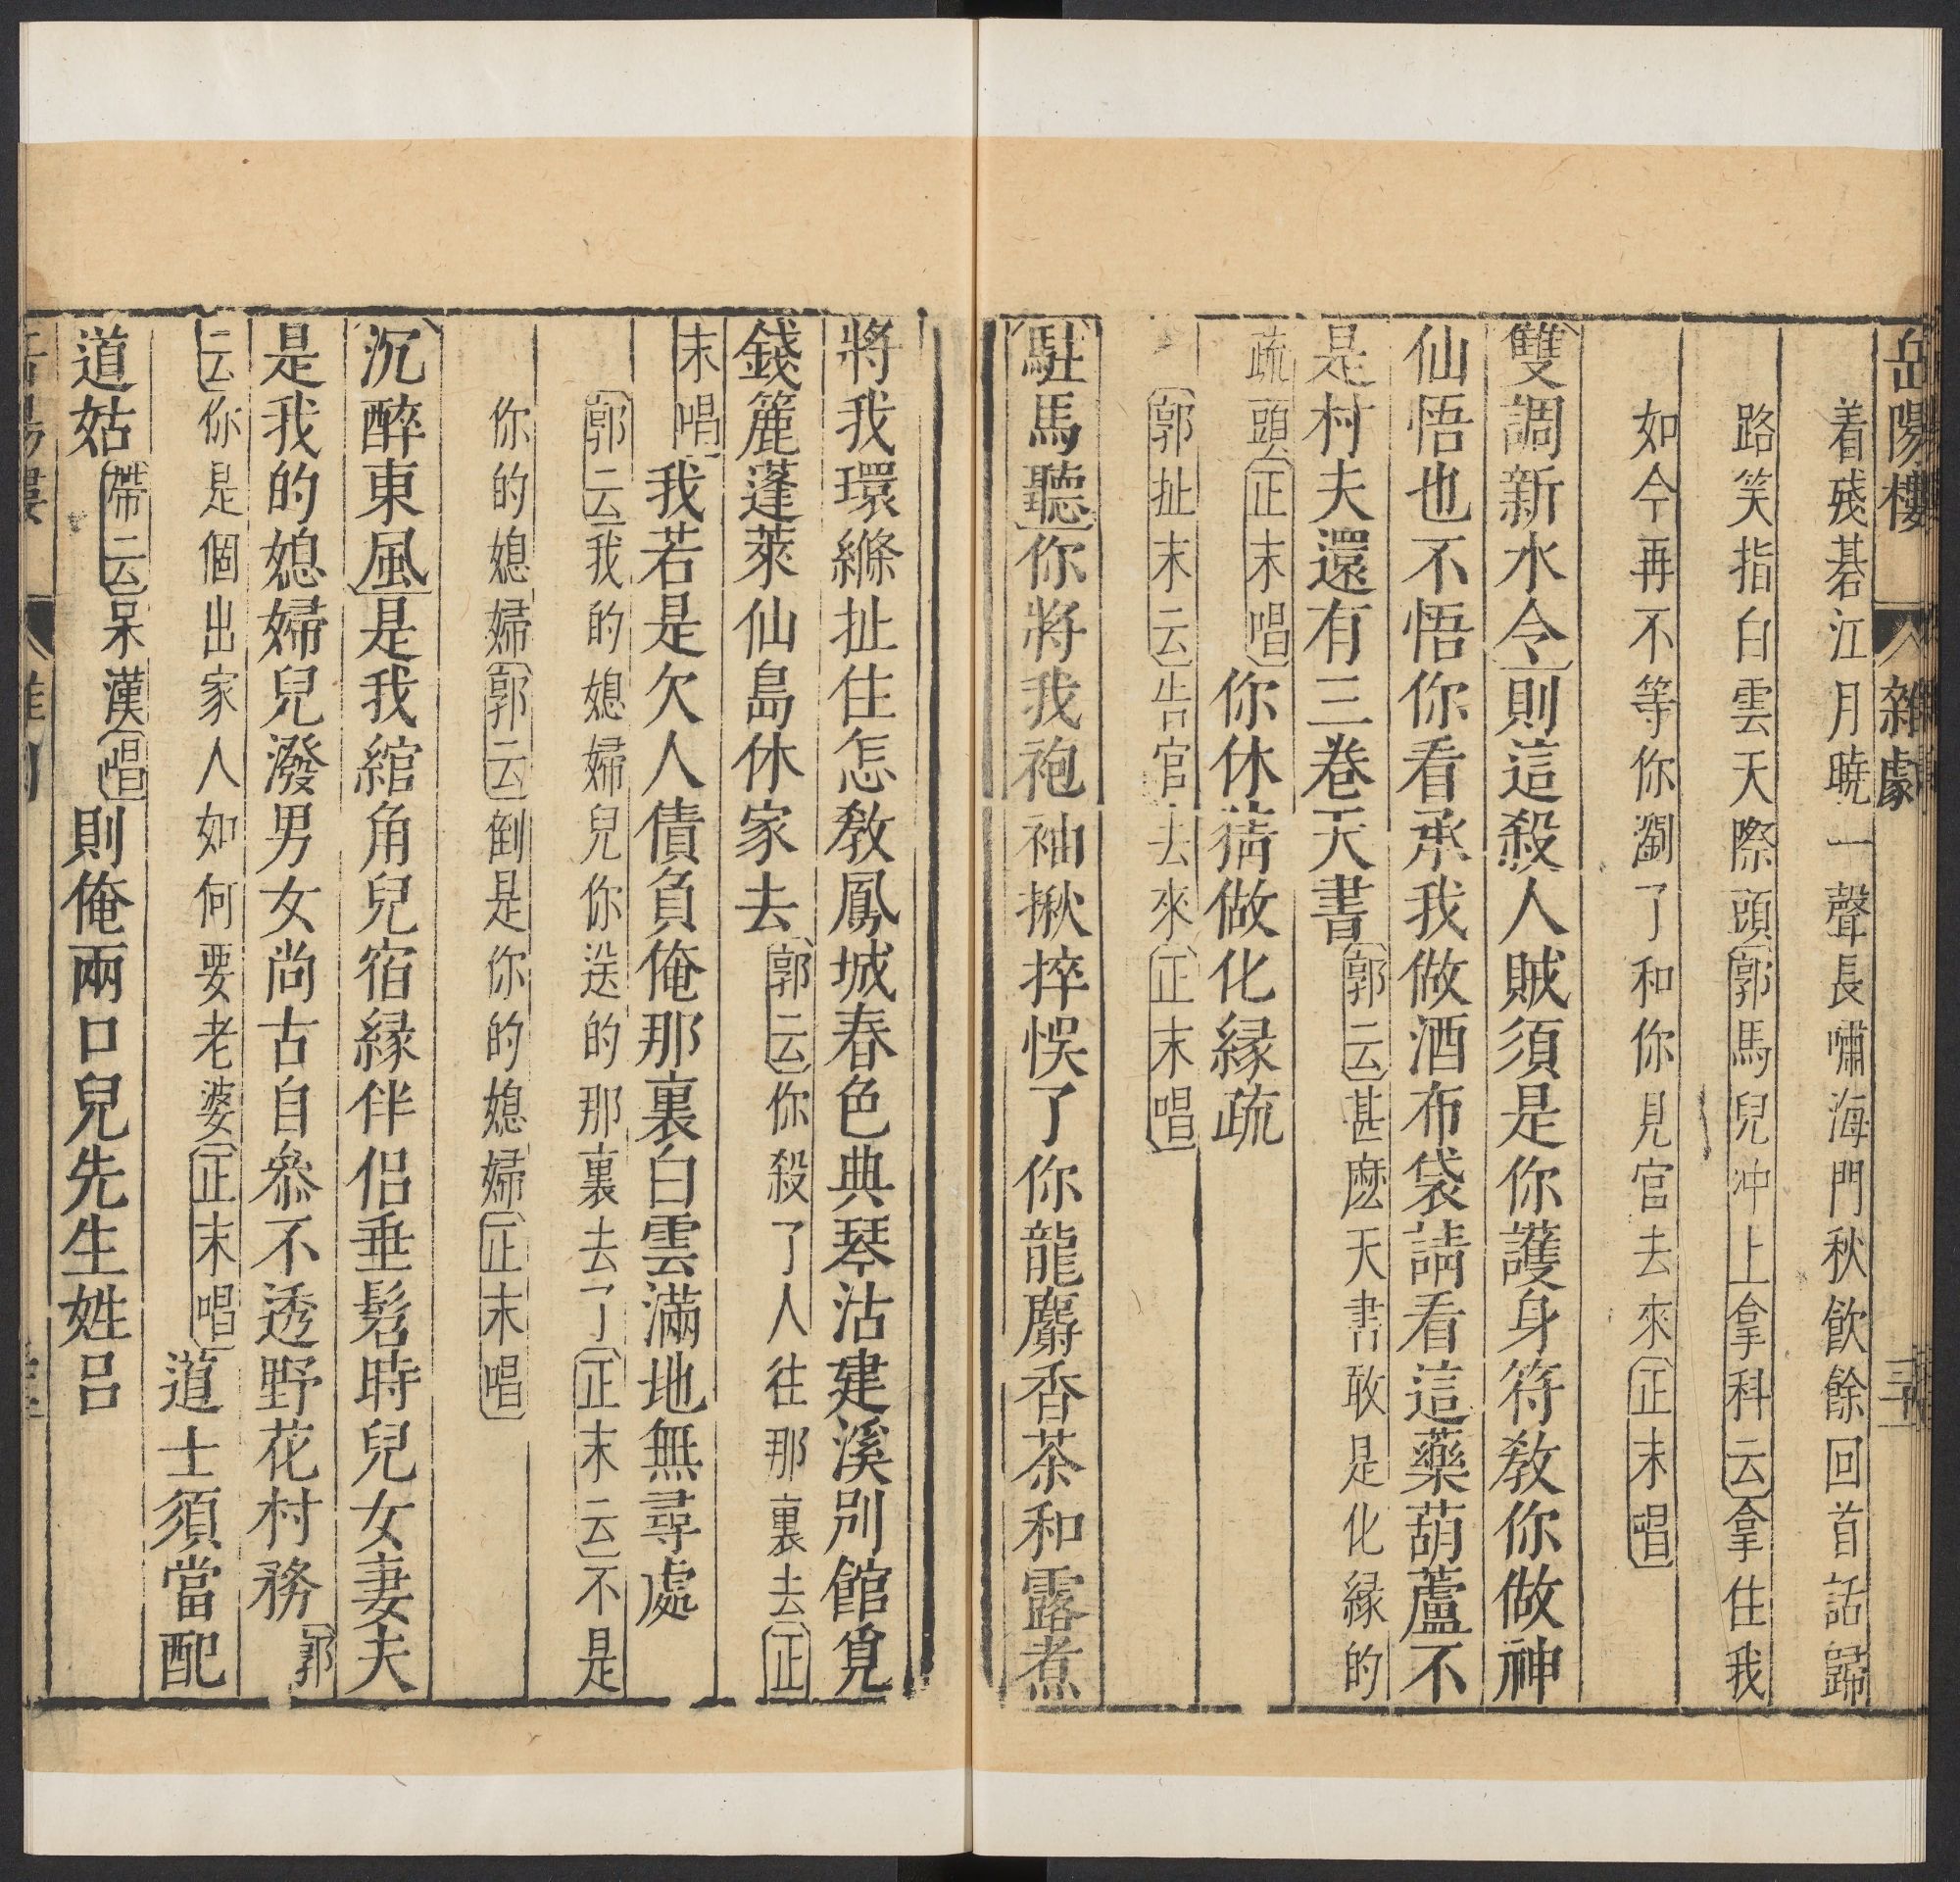 岳陽樓 雜劇 三十一
着殘碁江月曉一聲長嘯海門秋飲餘回首話歸
路笑指白雲天際頭郭馬兒冲上拿科云拿住我
如今再不等你瀏了和你見官去來正末唱
雙調新水令則這殺人賊須是你護身符教你做神
仙悟也不悟你看承我做酒布袋請看這藥葫蘆不
是村夫還有三卷天書郭云甚麽天書敢是化緣的
疏頭正末唱你休猜做化緣疏
郭扯末云告官去來正末唱
駐馬聽你將我袍袖揪捽悞了你龍麝香茶和露煮
將我環縧扯住怎教鳳城春色典琴沽建溪別館覓
錢麄蓬萊仙島休家去郭云你殺了人往那裏去正
末唱我若是欠人債負俺那裏白雲滿地無尋處
郭云我的媳婦兒你送的那裏去了正末云不是
你的媳婦郭云倒是你的媳婦正末唱
沉醉東風是我綰角兒宿緣伴侶垂髫時兒女妻夫
是我的媳婦兒潑男女尚古自參不透野花村務郭
云你是個出家人如何要老婆正末唱道士須當配
道姑帶云呆漢唱則俺兩口兒先生姓呂